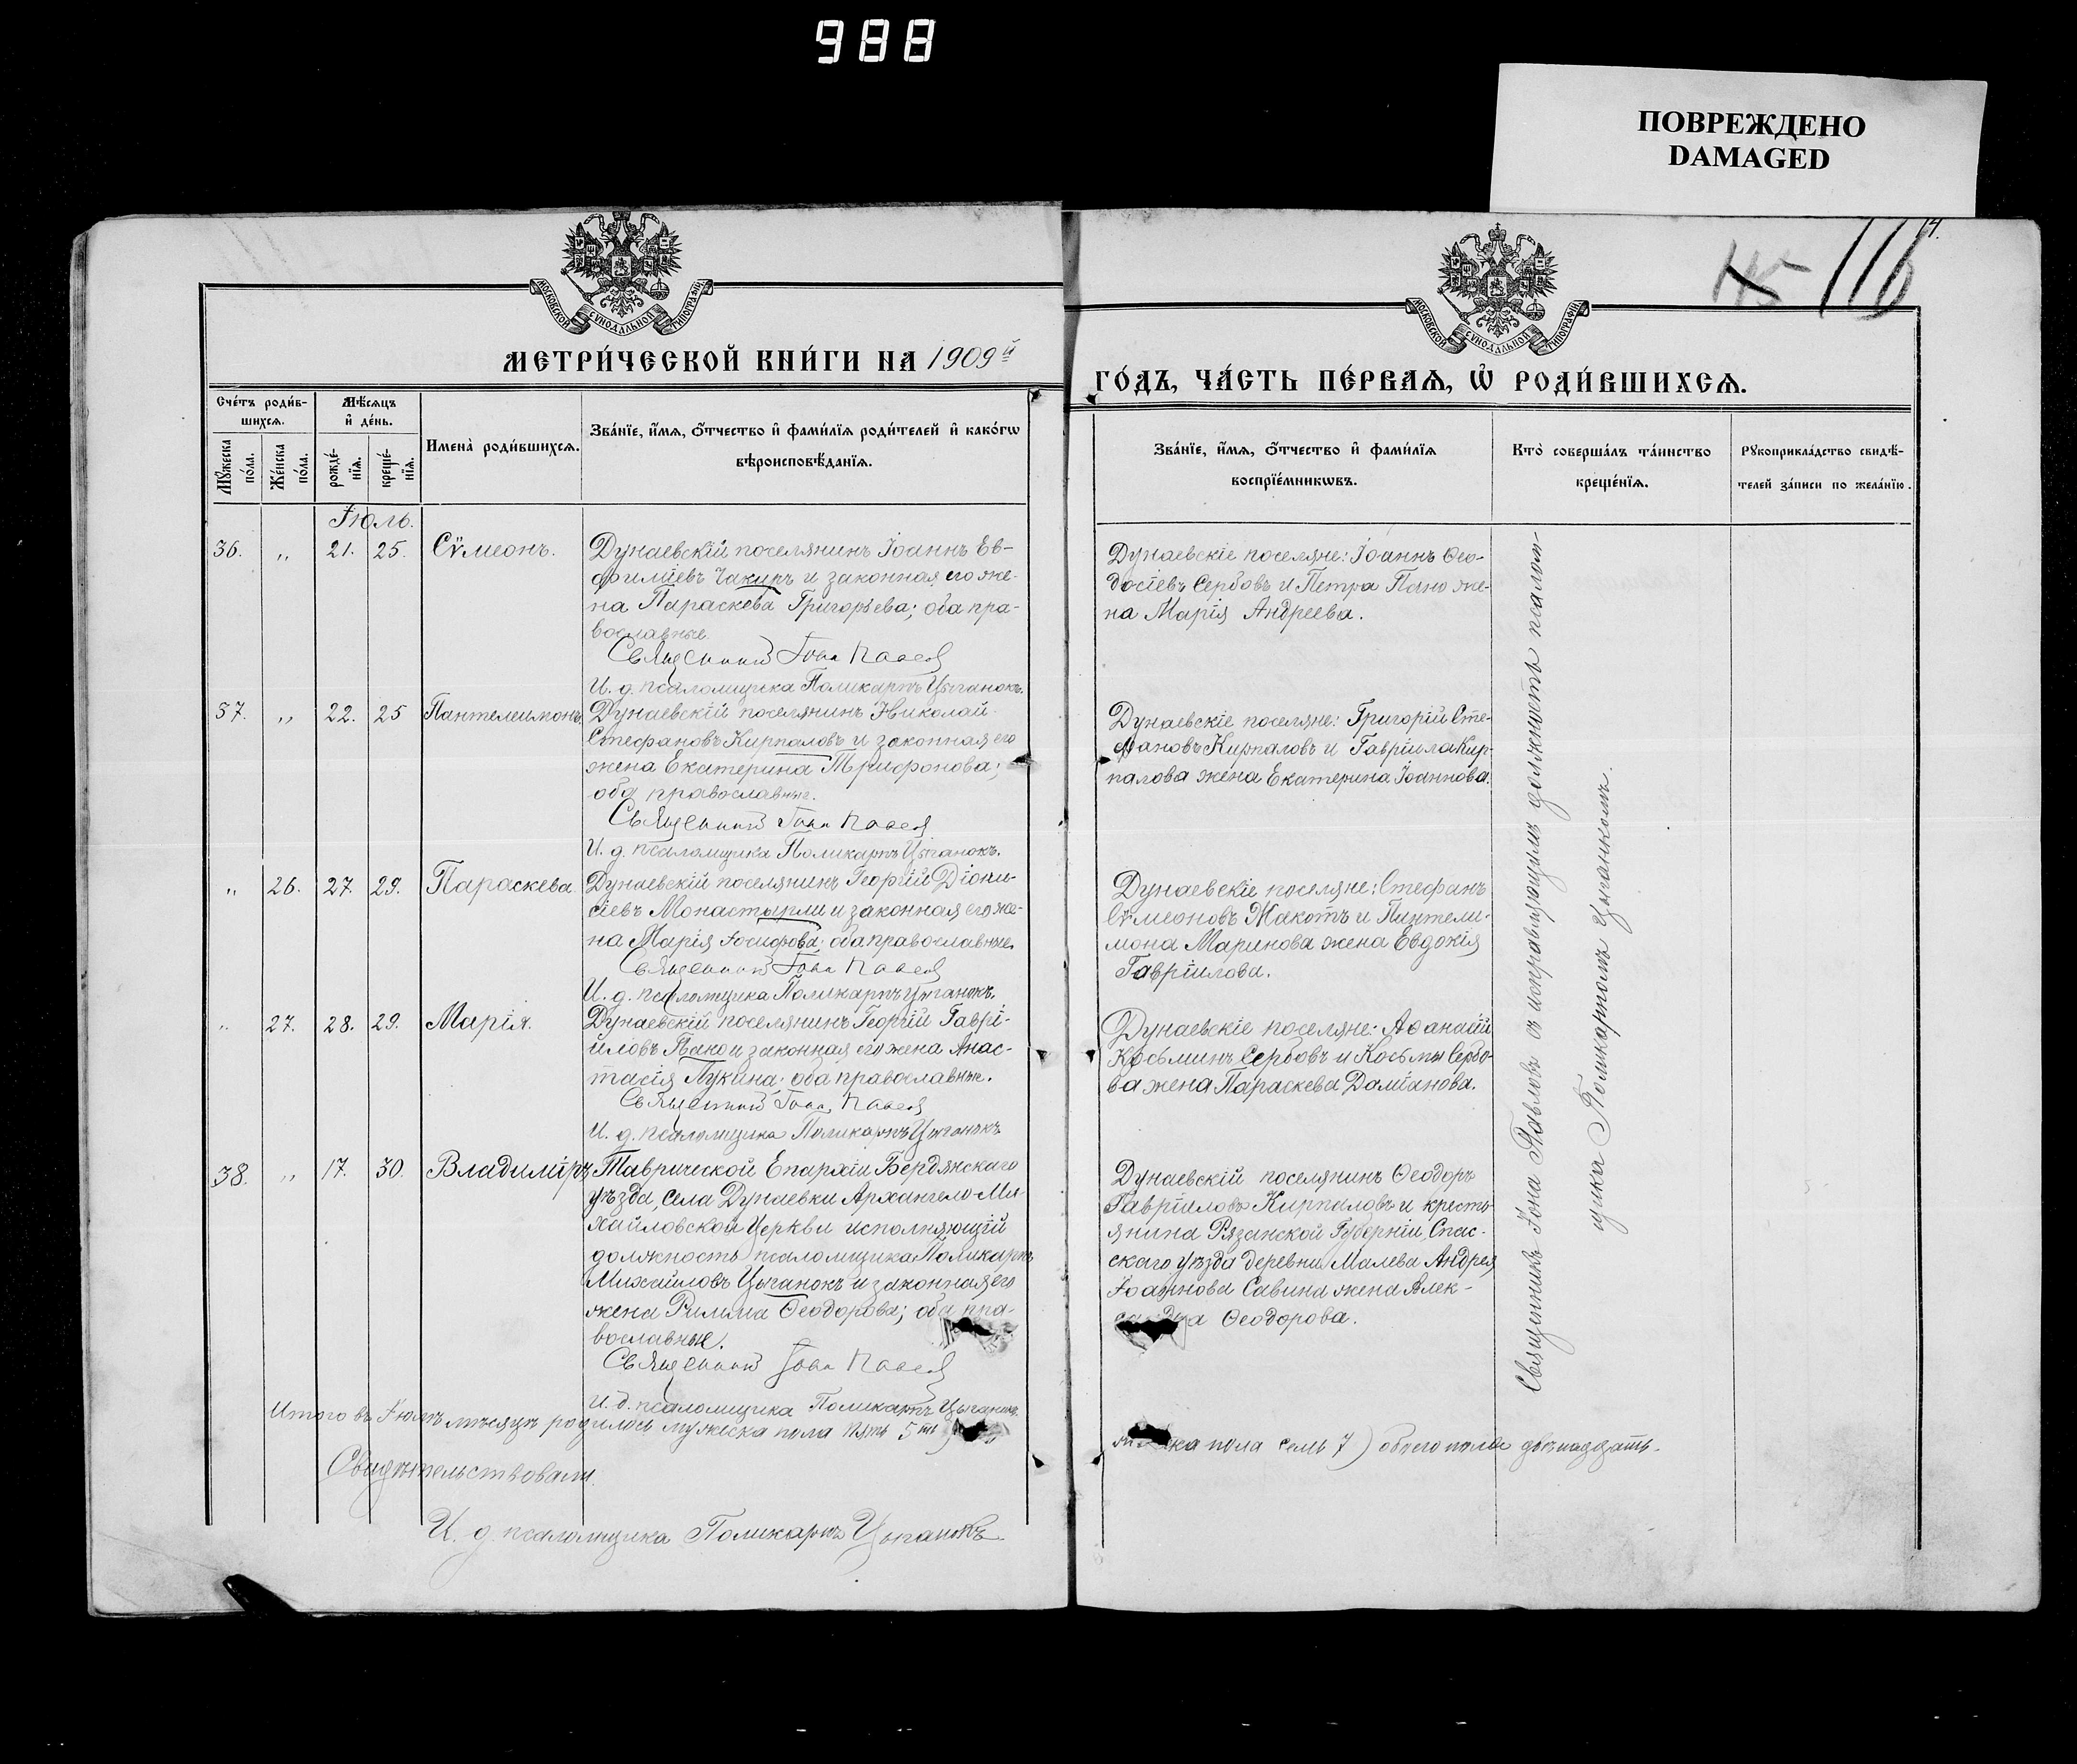 988
ПОВРЕЖДЕНО
DAMAGED
14.
115 116
МОСКОВСКОЙ СУНОДАЛЬНОЙ ТИПОГРАФІИ
МОСКОВСКОЙ СУНОДАЛЬНОЙ ТИПОГРАФІИ
МЕТРИ́ЧЕСКОЙ КНИ́ГИ НА 1909й
ГО́ДЪ, ЧА́СТЬ ПЕ́РВАѦ, Ѡ҆ РОДИ́ВШИХСѦ.
Сче́тъ роди́в-
шихсѧ.
Мꙋ́жеска
по́ла.
Же́нска
по́ла.
Мѣ́сѧцъ
и҆ де́нь.
рожде́-
нїѧ.
креще́-
нїѧ.
Имена̀ роди́вшихсѧ.
Зва́нїе, и҆́мѧ, ѻ҆́тчество и҆ фами́лїѧ роди́телей и҆ како́гѡ
вѣроисповѣ́данїѧ.
Зва́нїе, и҆́мѧ, ѻ҆́тчество и҆ фами́лїѧ
воспрїе́мникѡвъ.
Кто̀ соверша́лъ та́инство
креще́нїѧ.
Рꙋкоприкла́дство свидѣ́-
телей за́писи по жела́нїю.
Іюль.
36. „ 21. 25. Сѵмеонъ.
Дунаевскій поселянинъ Іоаннъ Ев-
фиміевъ Чакиръ и законная его же-
на Параскева Григорьева; оба пра-
вославные.
Священникъ Іона Павловъ
И. д. псаломщика Поликарпъ Цыганокъ.
Дунаевскіе поселяне: Іоаннъ Ѳео-
досіевъ Сербовъ и Петра Пано же-
на Марія Андреева.
37. „ 22. 25 Пантелеимонъ.
Дунаевскій поселянинъ Николай
Стефановъ Кирпаловъ и законная его
жена Екатерина Трифонова;
оба православные.
Священникъ Іона Павловъ
И. д. псаломщика Поликарпъ Цыганокъ.
Дунаевскіе поселяне: Григорій Сте-
фановъ Кирпаловъ и Гавріила Кир-
палова жена Екатерина Іоаннова.
„ 26. 27. 29. Параскева
Дунаевскій поселянинъ Георгій Діони-
сіевъ Монастырли и законная его же-
на Марія Іосифова; оба православные.
Священникъ Іона Павловъ
И. д. псаломщика Поликарпъ Цыганокъ.
Дунаевскіе поселяне: Стефанъ
Сѵмеоновъ Жакотъ и Пантели-
мона Маринова жена Евдокія
Гавріилова.
„ 27. 28. 29. Марія.
Дунаевскій поселянинъ Георгій Гаврі-
иловъ Пано и законная его жена Анас-
тасія Лукина; оба православные.
Священникъ Іона Павловъ
И. д. псаломщика Поликарпъ Цыганокъ
Дунаевскіе поселяне: Аѳанасій
Косьминъ Сербовъ и Косьмы Сербо-
ва жена Параскева Даміанова.
38. „ 17. 30. Владиміръ
Таврической Епархіи Бердянскаго
уѣзда, села Дунаевки Архангело-Ми-
хайловской Церкви исполняющій
должность псаломщика Поликарпъ
Михайловъ Цыганокъ и законная его
жена Римма Ѳеодорова; оба пра-
вославные.
Священникъ Іона Павловъ
И. д. псаломщика Поликарпъ Цыганокъ.
Дунаевскій поселянинъ Ѳеодоръ
Гавріиловъ Кирпаловъ и кресть-
янина Рязанской Губерніи, Спас-
скаго уѣзда деревни Малева Андрея
Іоаннова Савина жена Алек-
сандра Ѳеодорова.
Священникъ Іона Павловъ съ исправляющимъ должность псалом-
щика Поликарпомъ Цыганкомъ.
Итого въ Іюлѣ мѣсяцѣ родилось мужеска пола пять 5ть
ка пола семь 7) обоего пола двѣнадцать.
Свидѣтельствовали
И. д. псаломщика Поликарпъ Цыганокъ